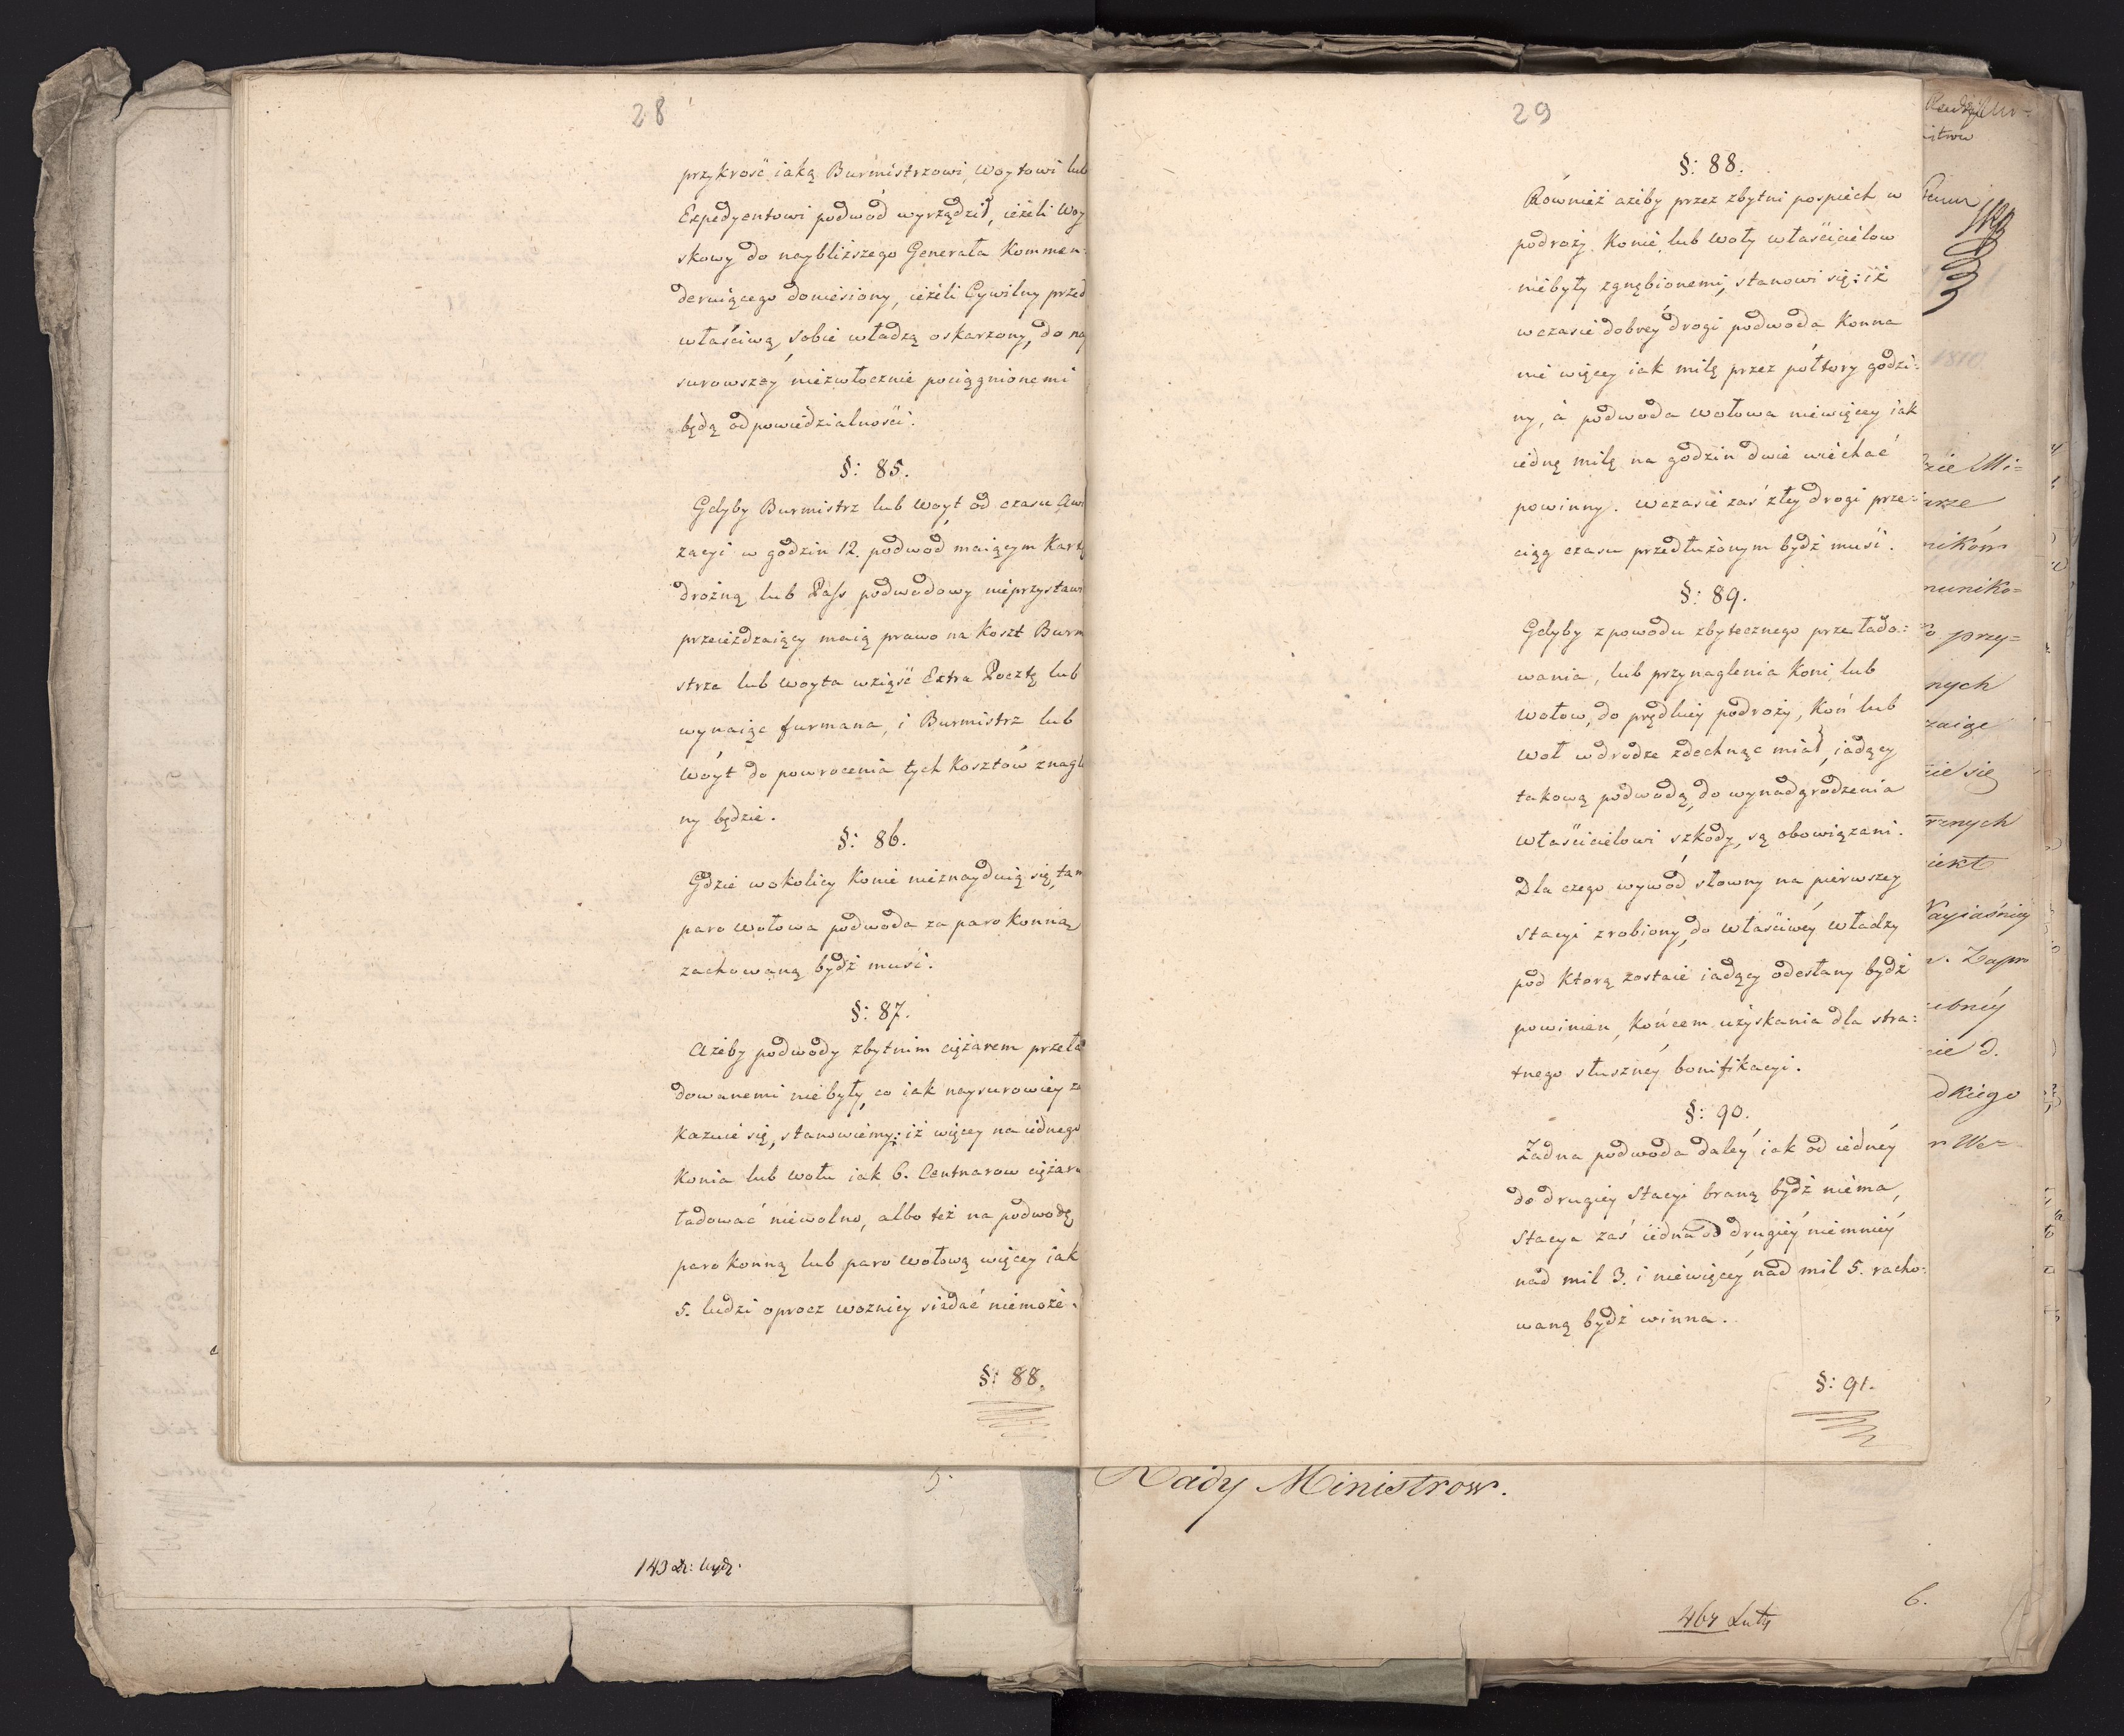 28
przykrość iaką Burmistrzowi, Woytowi lub
Expedyentowi podwód wyrządził, ieżeli Woy
skowy do naybliższego Generała Kommen:
deruiącego doniesiony, ieżeli Cywilny przed
właściwą sobie władzą oskarzony, do nay
surowszey niezwłocznie pociągnionemi
będą odpowiedzialności.
§: 85.
Gdyby Burmistrz lub Woyt od czasu Awi
zacyi w godzin 12. podwód maiącym Kartę
drożną lub Pass podwodowy nieprzystawi
przeieżdzaiący maią prawo na Koszt Burm
strza lub Woyta wziąść Extra Pocztę lub
wynaiąc furmana, i Burmistrz lub
Wóyt do powrocenia tych Kosztów znagl
ny będzie.
§: 86.
Gdzie wokolicy Konie nieznayduią się, tam
paro wołowa podwoda za paro Konną
zachowaną bydź musi.
§: 87.
Ażeby podwody zbytnim ciężarem przeła
dowanemi niebyły, co iak naysurowiey za
Kazuie się, stanowiemy: iż więcey na iednego
Konia lub wołu iak 6. Centnarow ciężaru
ładować niewolno, albo też na podwodę
paro Konną lub paro wołową więcey iak
5. ludzi oprocz woznicy siadać niemoże.
§: 88.
29
§: 88.
Również ażeby przez zbytni pospiech w
podroży Konie lub Woły właścicielow
niebyły zgnębionemi, stanowi się: iż
wczasie dobrey drogi podwoda Konna
nie więcey iak milę przez półtory godzi:
ny, a podwoda wołowa niewięcey iak
iednę milę na godzin dwie uiechać
powinny. Wczasie zaś złey drogi prze:
ciąg czasu przedłużonym bydź musi.
§: 89.
Gdyby zpowodu zbytecznego przełado:
wania, lub przynaglenia Koni lub
Wołow, do prędkiey podroży, Koń lub
Woł wdrodze zdechnąc miał, iadący
takową podwodą, do wynadgrodzenia
właścicielowi szkody, są obowiązani.
Dla czego wywód słowny na pierwszey
Stacyi zrobiony, do właściwéy władzy
pod Ktorą zostaie iadący odesłany bydź
powinien, Końcem uzyskania dla stra:
tnego słuszney bonifikacyi.
§: 90.
Żadna podwoda daley iak od iednéy
do drugiey Stacyi braną bydź niema,
Stacya zaś iedna od drugiey niemniey
nad mil 3. i niewięcey nad mil 5. racho:
waną bydź winna.
§: 91.
Rady Ministrow.
6.